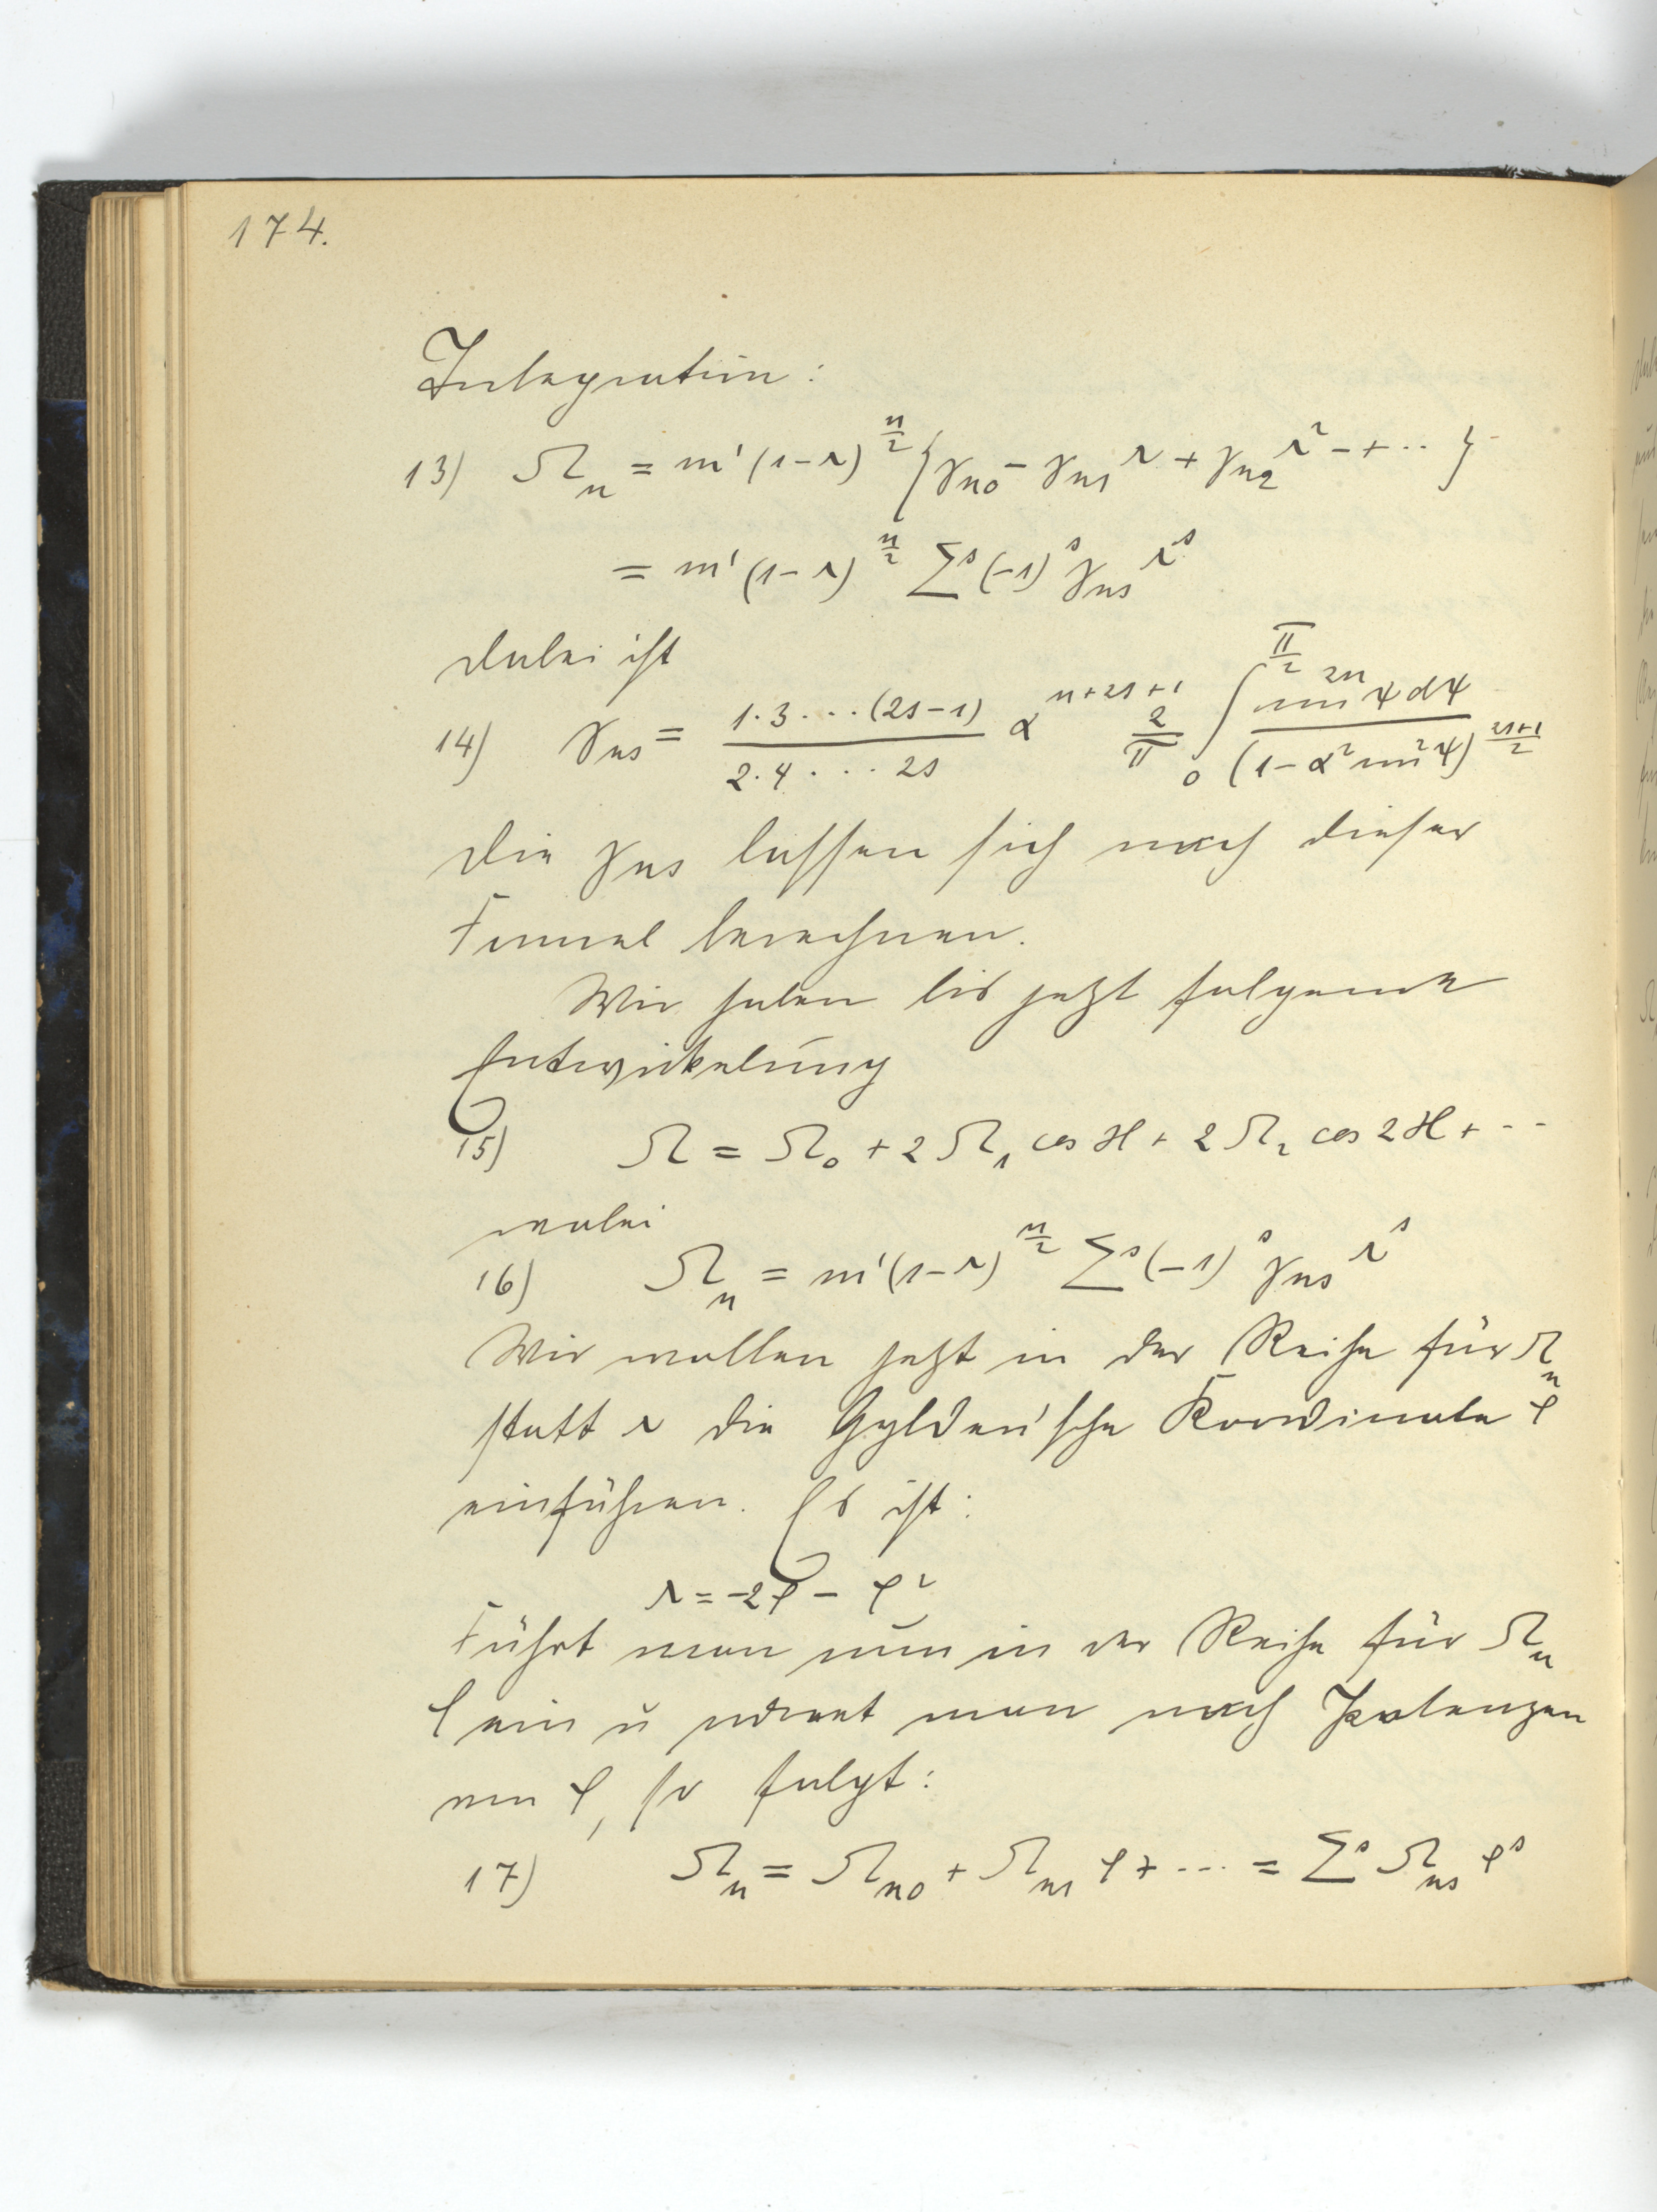 174.
Integration:
13) Ω_n = m'(1-r)^{n/2} {γ_{n0} - γ_{n1} r + γ_{n2} r² - + ··· }
= m'(1-r)^{n/2} Σ^s (-1)^s γ_{ns} r^s
dabei ist
14) γ_{ns} = \frac{1·3···(2s-1)}{2·4···2s} α^{n+2s+1} \frac{2}{π} ∫_0^{π/2} \frac{sin^{2n} ψ dψ}{(1-α² sin² ψ)^{\frac{2s+1}{2}}}
die γ_{ns} lassen sich nach dieser
Formel berechnen.
Wir haben bis jetzt folgende
Entwickelung
15) Ω = Ω_0 + 2 Ω_1 cos H + 2 Ω_2 cos 2H + ···
wobei
16) Ω_n = m'(1-r)^{n/2} Σ^s (-1)^s γ_{ns} r^s
Wir wollen jetzt in der Reihe für Ω_n
statt r die Gylden'sche Koordinate ρ
einführen. Es ist:
r = -2ρ - ρ²
Führt man nun in der Reihe für Ω_n
ρ ein u ordnet man nach Potenzen
von ρ, so folgt:
17) Ω_n = Ω_{n0} + Ω_{n1} ρ + ··· = Σ^s Ω_{ns} ρ^s